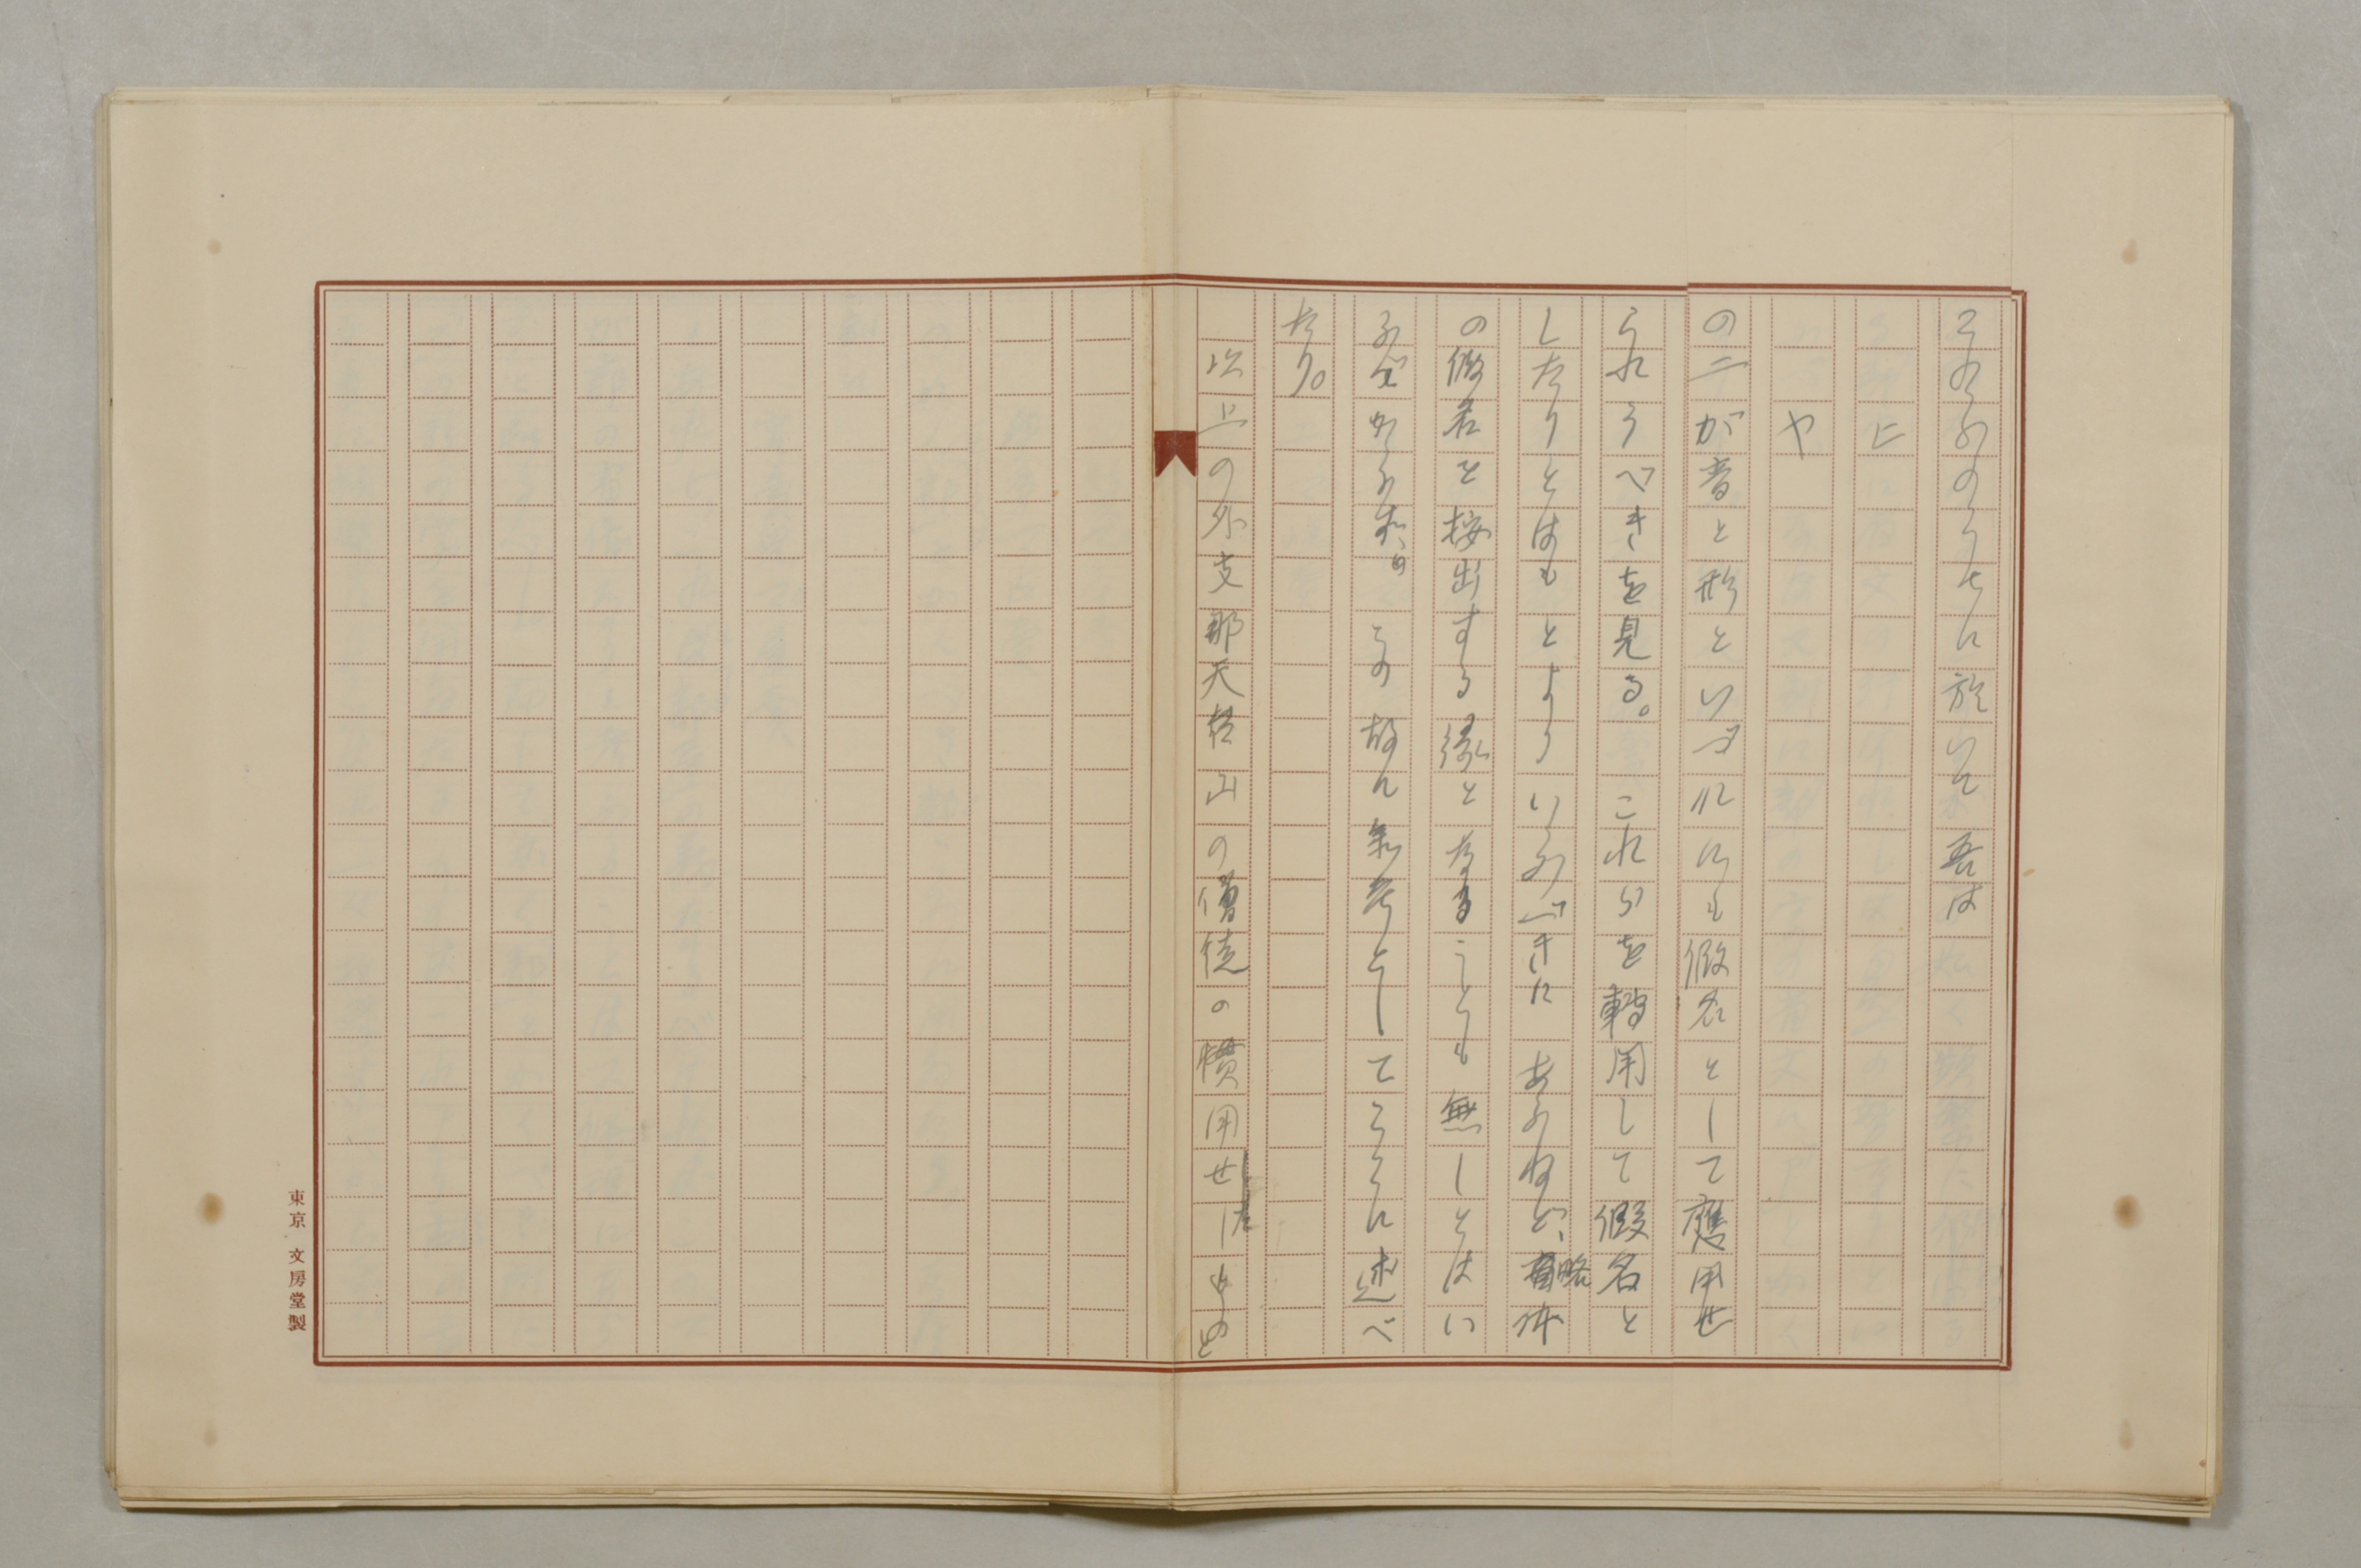 それらのうちに於いて吾は
に
や
の二が音と形といづれにも假名として應用せ
られうべきを見る。これらを轉用して假名と
したりとはもとよりいふべきにあらねど、略体
の假名を按出する縁となることも無しとはい
ふべからず。この故に参考としてここに述べ
たり。
以上の外支那天台山の僧徒の慣用せしものと
東京 文房堂製